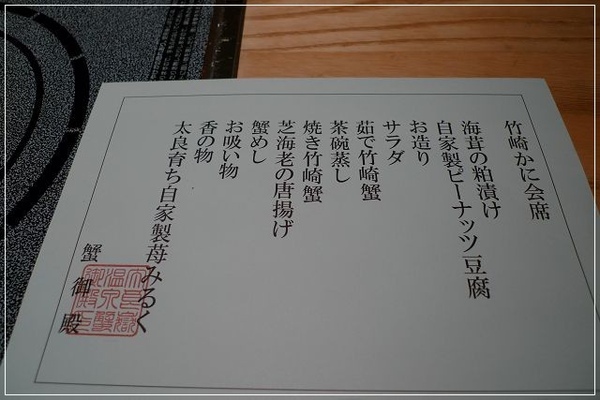 竹崎かに会席
海茸の粕漬け
自家製ピーナッツ豆腐
お造り
サラダ
茹で竹崎蟹
茶碗蒸し
焼き竹崎蟹
芝海老の唐揚げ
蟹めし
お吸い物
香の物
太良育ち自家製苺みるく
蟹御殿